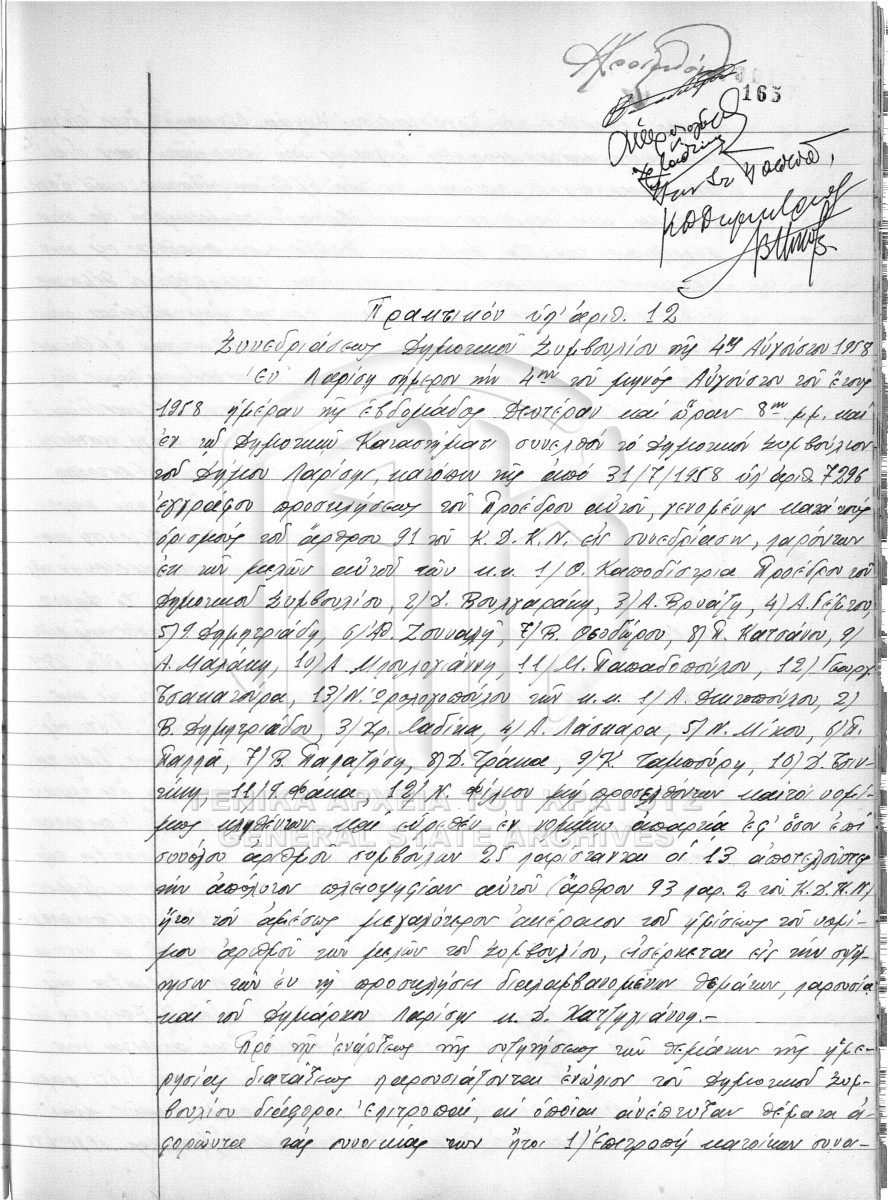 165
Πρακτικόν ὑπ' ἀριθ. 12
Συνεδριάσεως Δημοτικοῦ Συμβουλίου τῆς 4ης Αὐγούστου 1958
Ἐν Λαρίσῃ σήμερον τὴν 4ην τοῦ μηνός Αὐγούστου τοῦ ἔτους
1958 ἡμέραν τῆς ἑβδομάδος Δευτέραν καί ὥραν 8ην μμ. καί
ἐν τῷ Δημοτικῷ Καταστήματι συνελθόν τό Δημοτικόν Συμβούλιον
τοῦ Δήμου Λαρίσης, κατόπιν τῆς ἀπό 31/7/1958 ὑπ' ἀριθ. 7296
ἐγγράφου προσκλήσεως τοῦ Προέδρου αὐτοῦ, γενομένης κατά τούς
ὁρισμούς τοῦ ἄρθρου 91 τοῦ Κ.Δ.Κ.Ν. εἰς συνεδρίασιν, παρόντων
ἐκ τῶν μελῶν αὐτοῦ τῶν κ.κ. 1/ Θ. Καποδίστρια Προέδρου τοῦ
Δημοτικοῦ Συμβουλίου, 2/ Δ. Βουλγαράκη, 3/ Α. Βρυάζη, 4/ Α. Γέμτου,
5/ Ι. Δημητριάδη, 6/ Ἀθ. Ζουναλῆ, 7/ Β. Θεοδώρου, 8/ Π. Κατσάνου, 9/
Α. Μαλάκη, 10/ Α. Μπουλογιάννη, 11/ Μ. Παπαδοπούλου, 12/ Γεωργ.
Τσακατούρα, 13/ Ν. Ὡρολογοπούλου τῶν κ.κ. 1/ Α. 2/
Β. Δημητριάδου, 3/ Χρ. Λαδίκα, 4/ Α. Λάσκαρα, 5/ Ν. Μίχου, 6/ Π.
Παππᾶ, 7/ Β. Παλατζήση, 8/ Δ. Τράκα, 9/ Κ. Ταμπούρη, 10/ Δ. Τσιν-
11/ Ι. Φάκα, 12/ Ν. Φίλιου μή προσελθόντων καίτοι νομί-
μως κληθέντων καί εὑρεθέν ἐν νομίμῳ ἀπαρτίᾳ ἐφ' ὅσον ἐπί
συνόλου ἀριθμοῦ συμβούλων 25 παρίστανται οἱ 13 ἀποτελοῦντες
τήν ἀπόλυτον πλειοψηφίαν αὐτοῦ (ἄρθρον 93 παρ. 2 τοῦ Κ.Δ.Κ.Ν)
ἤτοι τόν ἀμέσως μεγαλύτερον ἀκέραιον τοῦ ἡμίσεως τοῦ νομί-
μου ἀριθμοῦ τῶν μελῶν τοῦ Συμβουλίου, εἰσέρχεται εἰς τήν συζή-
τησιν τῶν ἐν τῇ προσκλήσει διαλαμβανομένων θεμάτων, παρουσίᾳ
καί τοῦ Δημάρχου Λαρίσης κ. Δ. Χατζηγιάννη.-
Πρό τῆς ἐνάρξεως τῆς συζητήσεως τῶν θεμάτων τῆς ἡμε-
ρησίας διατάξεως παρουσιάζονται ἐνώπιον τοῦ Δημοτικοῦ Συμ-
βουλίου διάφοροι ἐπιτροπαί, αἱ ὁποῖαι ἀνέπτυξαν θέματα ἀ-
φορῶντα τάς συνοικίας των ἤτοι 1/ Ἐπιτροπή κατοίκων συνοι-
ΓΕΝΙΚΑ ΑΡΧΕΙΑ ΤΟΥ ΚΡΑΤΟΥΣ
GENERAL STATE ARCHIVES